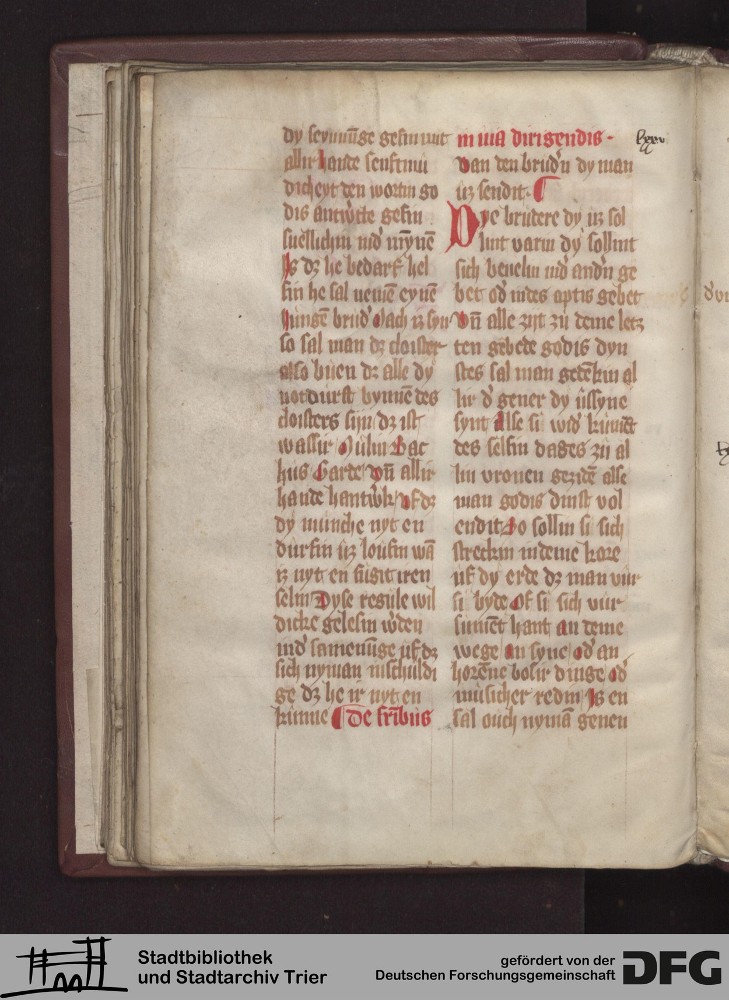 dy seynũge gesin mit
allir hande senftmu
dicheyt den wortin go
dis antw̾te gesin
suellichin mð mȳnē
Is dz he bedarf hel
fin he sal nemē eynē
Jungē brud̾ Mach iz syn
so sal man dz cloister
also buen dz alle dy
notdurst bynnē des
cloisters sijn dz ist
wassir Mulin Bac
hus Garde vn̄ allir
hande hantw̾k vf dz
dy munche nyt en
durfin uz loufin wā
iz nyt en fugit iren
selin Dyse regule wil
dicke gelesin w̾den
in d̾ samenūge uf dz
sich nyman inschuldi
ge dz he ir nyt en
kunne De fr̄ibus
in uia dirigendis
van den brud̾n dy man
uz sendit
Dye brudere dy uz sol
lint varin dy sollint
sich bevelin in d̾ and̾n ge
bet od̾ in des aptis gebet
Vn̄ alle zijt zu deme letz
ten gebede godis dyn
stes sal man gedēkin al
lir d̾ gener dy ūssyne
synt Alse si wid̾ kumēt
des selfin dages zu al
lin vronen gezidē alse
man godis dinst vol
endit So sollin si sich
streckin in deme kore
uf dy erde dz man vur
si byde Of si sich vur
sumēt hant an deme
wege An syne od̾ an
horēne boser dinge od̾
mūsicher redin Is en
sal ouch nymā genen
lxxv
Stadtbibliothek
und Stadtarchiv Trier
gefördert von der
Deutschen Forschungsgemeinschaft
DFG